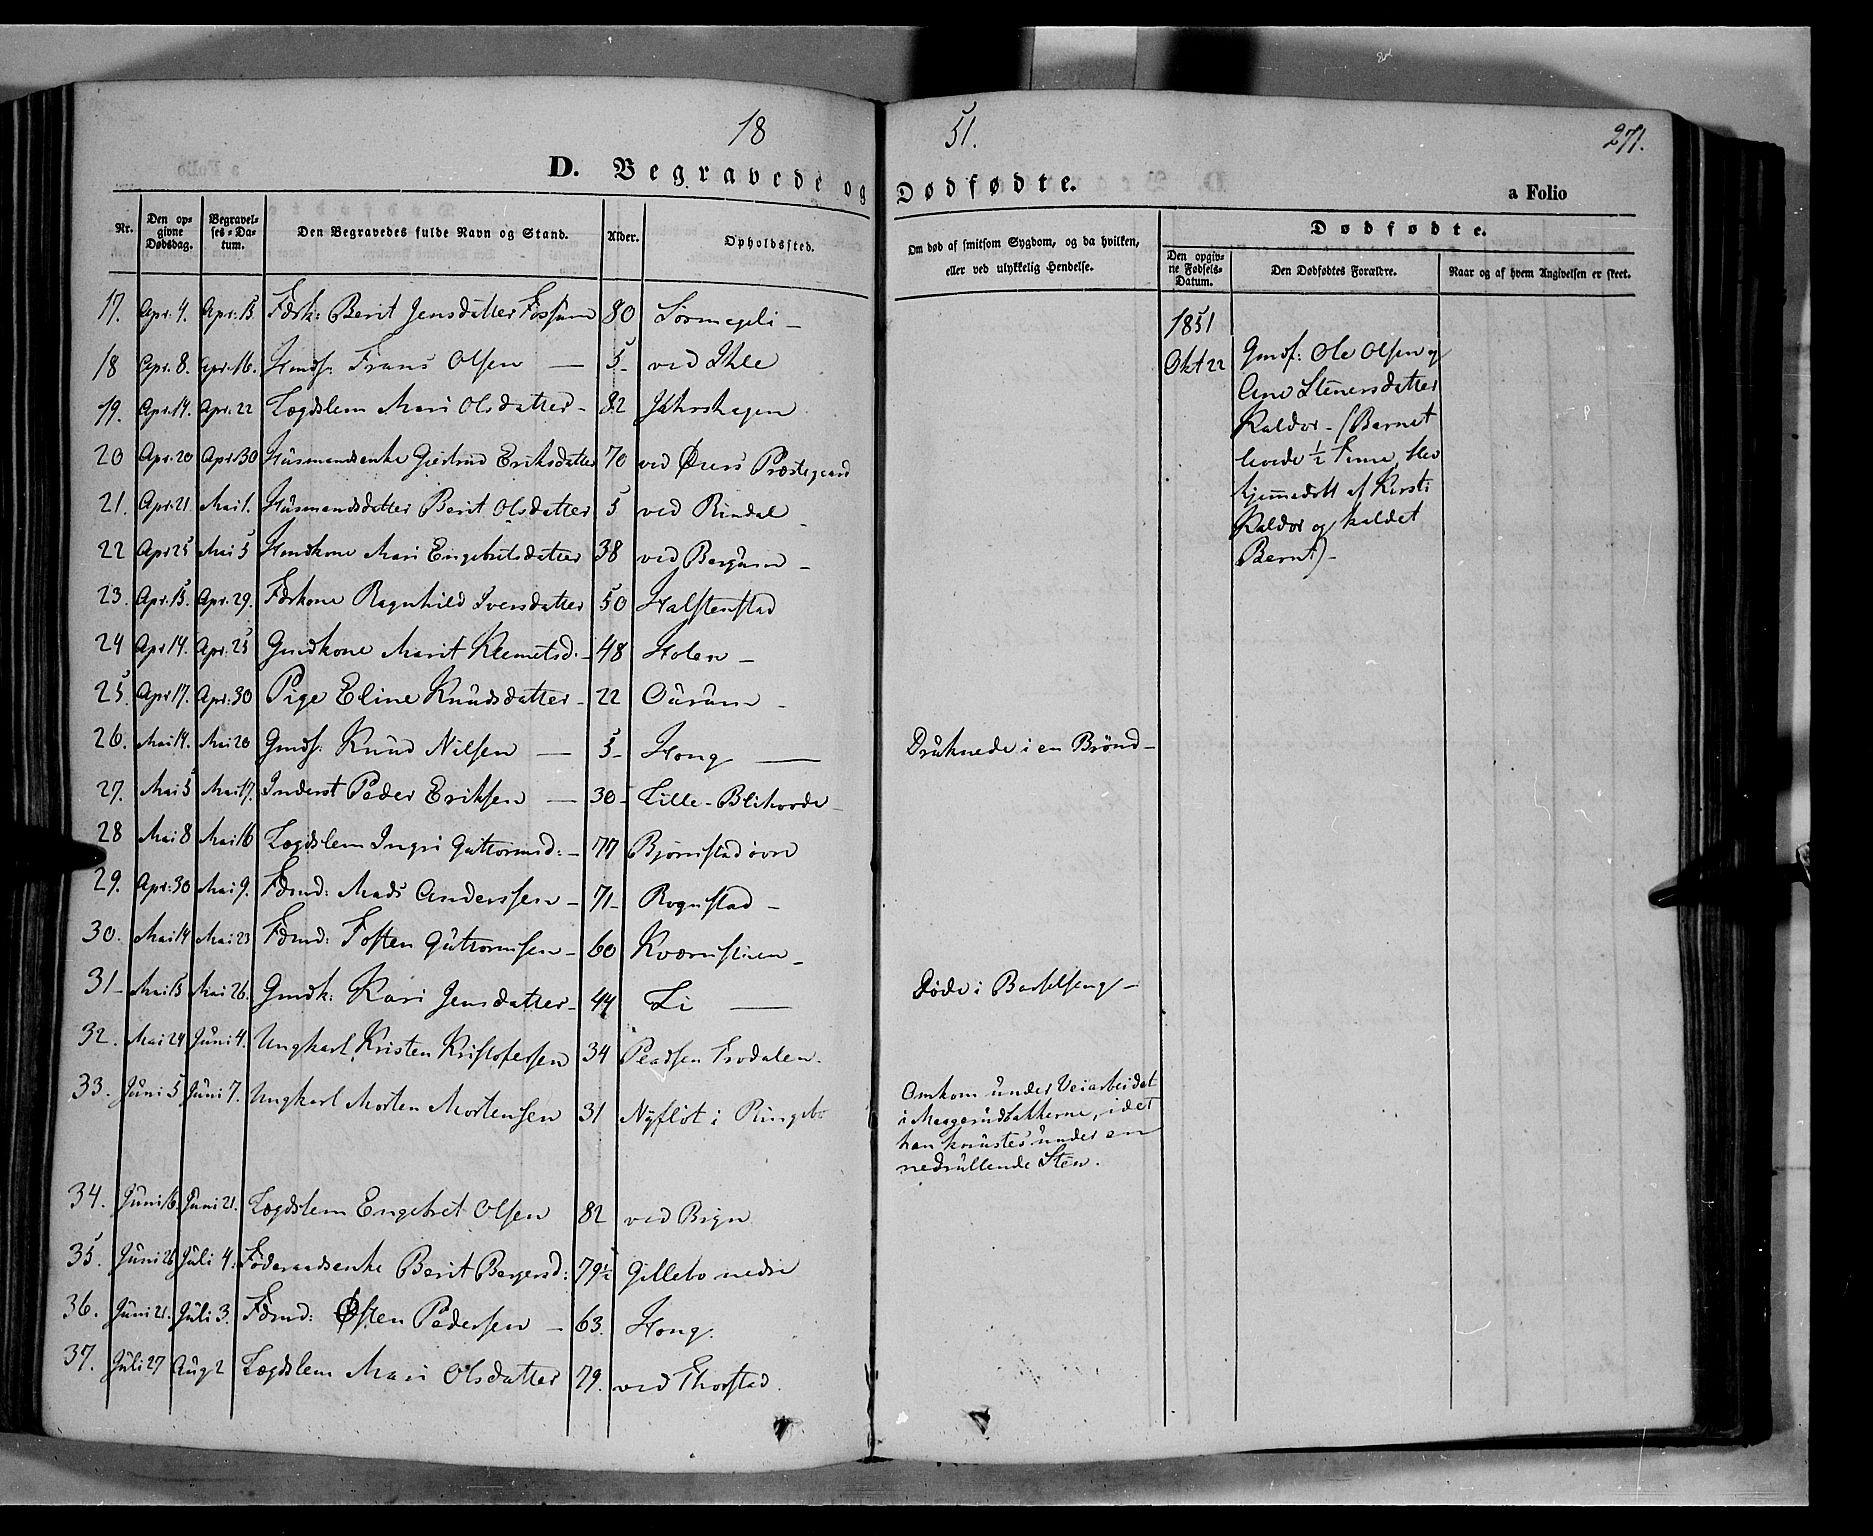 18 51. 271.
D. Begravede og Dødfødte. a Folio
Nr. Den op-givne Dødsdag. Begravel-ses-Da-tum. Den Begravedes fulde Navn og Stand. Alder. Opholdssted. Om død af smitsom Sygdom, og da hvilken, eller ved ulykkelig Hendelse. Dødfødte.
Den opgiv-ne Fødsels-Datum. Den Dødfødtes Forældre. Naar og af hvem Angivelsen er skeet.
17. Apr. 4. Apr. 15 Førk: Berit Jensdatter Fossum 80
18 Apr. 8. Apr. 16. Hmdsf. Frans Olsen — 5 - ved Ihle
19. Apr. 14. Apr. 22 Lægdslem Mari Olsdatter - 82
20 Apr. 20 Apr. 30 Husmandsenke Gjertrud Eriksdatter 70 ved Øiers Præstegaard
21. Apr. 21 Mai 1. Husmandsdatter Berit Olsdatter 5 ved Rindal -
22 Apr 25 Mai 5 Hmdkone Mari Engebretsdatter 38 ved Bergum -
23. Apr. 15. Apr. 29. Førkone Ragnhild Iversdatter 50 Halstenstad
24 Apr 14. Apr. 25 Gmdkone Marit Klemetsd: - 48 Holen -
25. Apr 17. Apr. 30 Pige Eline Knudsdatter - 22 Aurum -
26. Mai 14. Mai 20 Gmdsf. Knud Nilsen — 5 - Hong — Druknede i en Brønd -
27. Mai 5 Mai 17. Inderst Peder Eriksen — 30 - Lille-
28 Mai 8 Mai 16 Lægdslem Ingri Guttormsd: - 77 Bjørnstad øvre
29. Apr. 30 Mai 9. Førmd: Mads Anderssen - 71 - Rognstad -
30. Mai 14 Mai 23 Førmd: Tosten Guttormsen - 60 Kværnstuen -
31 - Mai 15 Mai 26. Gmdk: Kari Jensdatter - 44 Li — Døde i Barselseng -
32. Mai 24 Juni 4. Ungkarl Kristen Kristofersen 34
33. Juni 5 Juni 7. Ungkarl Morten Mortensen 31 Nyfløt i Ringebo
Omkom under Veiarbeidet
i Maagerudbakkerne, idet
han knustes under en
nedrullende Sten.
34. Juni 16. Juni 21. Lægdslem Engebret Olsen 82 ved
35. Juni 26 Juli 4. Føderaadsenke Berit Bergersd: 79½ Gillebo nedre
36. Juni 21. Juli 3. Førmd: Østen Pedersen - 63. Hong.
37. Juli 27 Aug 2 Lægdslem Mari Olsdatter 79. ved Thorstad.
1851
Okt 22 Gmdsf: Ole Olsen og
Ane Stenersdatter
Kaldor - (Barnet
levede ½ Time, blev
hjemmedøbt af Kirsti
Kaldor og kaldet
Bernt) -